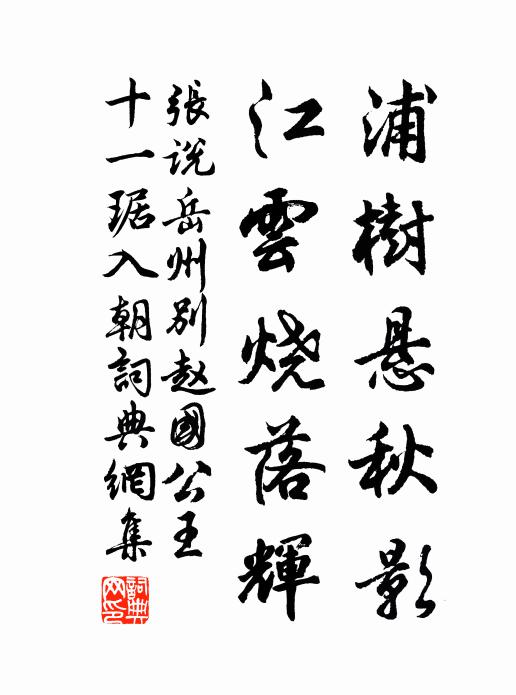 浦樹悬秋影
江雲烧落輝
張说岳州别赵國公王
十一琚入朝詞典網集
詞典網印